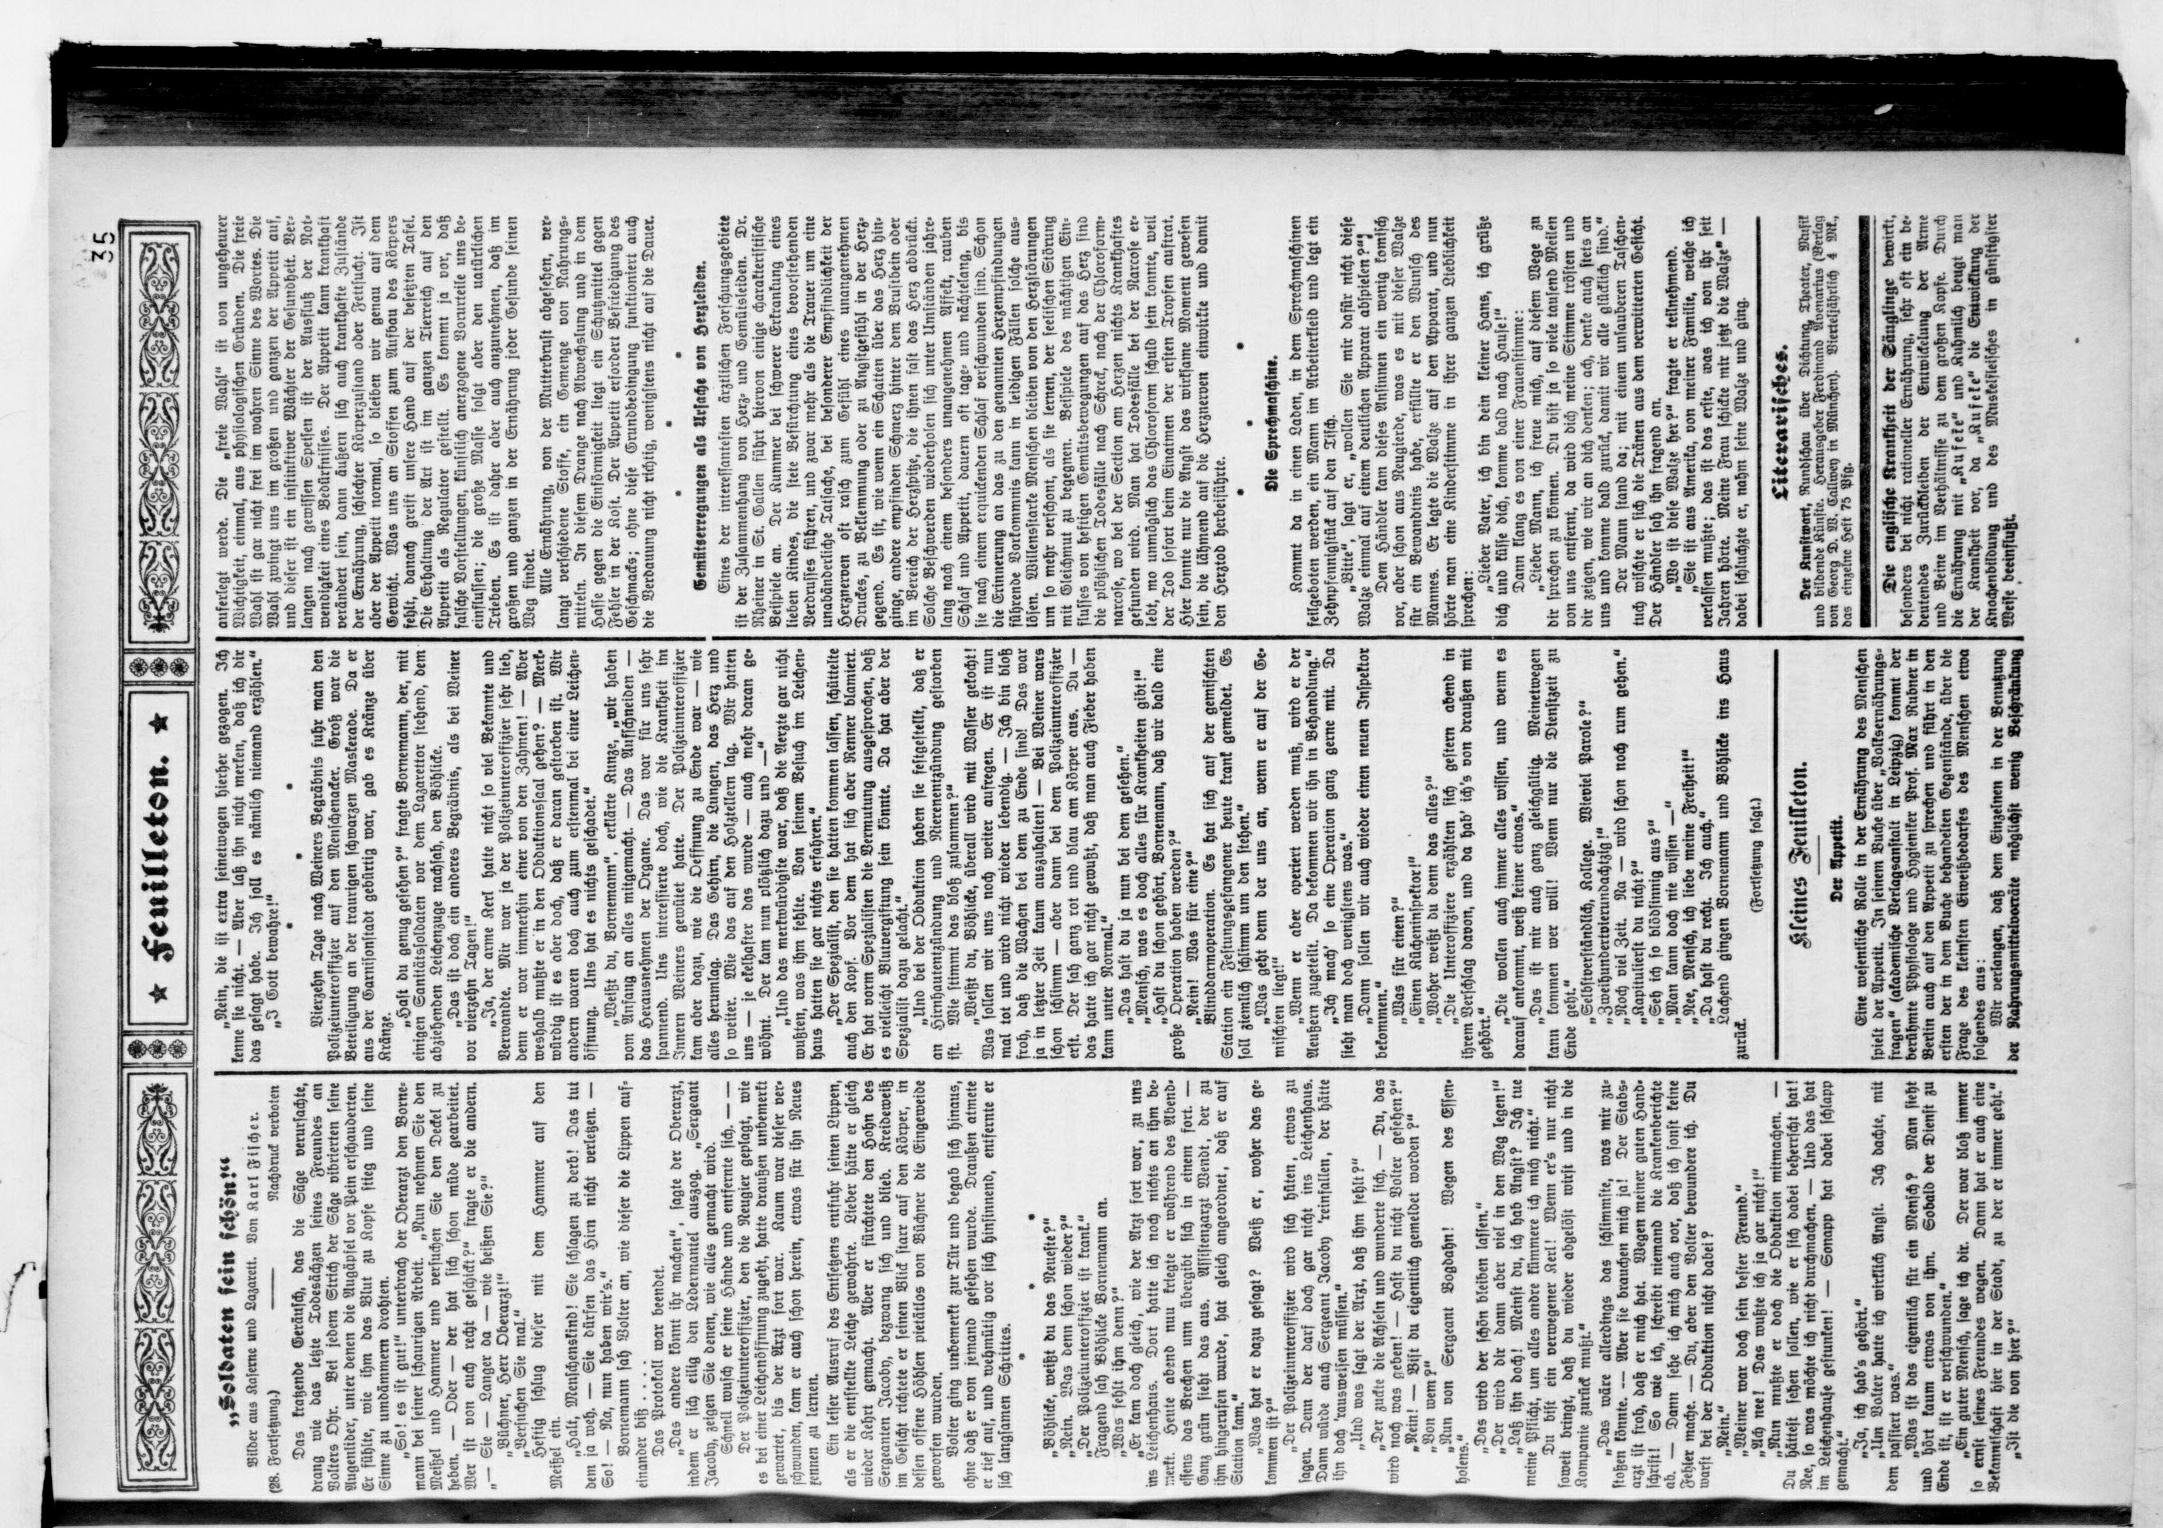 35
★ Feuilleton. ★
„Soldaten sein schön!“
Bilder aus Kaserne und Lazarett. Von Karl Fischer.
(28. Fortsetzung.) Nachdruck verboten
Das kratzende Geräusch, das die Säge verursachte,
drang wie das letzte Todesächzen seines Freundes an
Volters Ohr. Bei jedem Strich der Säge vibrierten seine
Augenlider, unter denen die Augäpfel vor Pein erschauderten.
Er fühlte, wie ihm das Blut zu Kopfe stieg und seine
Sinne zu umdämmern drohten.
„So! es ist gut!“ unterbrach der Oberarzt den Borne-
mann bei seiner schaurigen Arbeit. „Nun nehmen Sie den
Meißel und Hammer und versuchen Sie den Deckel zu
heben. — Oder — der hat sich schon müde gearbeitet.
Wer ist von euch recht geschickt?“ fragte er die andern.
„— Sie — Langer da — wie heißen Sie?“
„Büchner, Herr Oberarzt!“
„Versuchen Sie mal.“
Heftig schlug dieser mit dem Hammer auf den
Meißel ein.
„Halt, Menschenskind! Sie schlagen zu derb! Das tut
dem ja weh. — Sie dürfen das Hirn nicht verletzen. —
So! — Na, nun haben wir's.“
Bornemann sah Volter an, wie dieser die Lippen auf-
einander biß . . . . .
Das Protokoll war beendet.
„Das andere könnt ihr machen“, sagte der Oberarzt,
indem er sich eilig den Ledermantel auszog. „Sergeant
Jacoby, zeigen Sie denen, wie alles gemacht wird.
Schnell wusch er seine Hände und entfernte sich. — —
Der Polizeiunteroffizier, den die Neugier geplagt, wie
es bei einer Leichenöffnung zugeht, hatte draußen unbemerkt
gewartet, bis der Arzt fort war. Kaum war dieser ver-
schwunden, kam er auch schon herein, etwas für ihn Neues
kennen zu lernen.
Ein leiser Ausruf des Entsetzens entfuhr seinen Lippen,
als er die entstellte Leiche gewahrte. Lieber hätte er gleich
wieder Kehrt gemacht. Aber er fürchtete den Hohn des
Sergeanten Jacoby, bezwang sich und blieb. Kreideweiß
im Gesicht richtete er seinen Blick starr auf den Körper, in
dessen offene Höhlen pietätlos von Büchner die Eingeweide
geworfen wurden.
Volter ging unbemerkt zur Tür und begab sich hinaus,
ohne daß er von jemand gesehen wurde. Draußen atmete
er tief auf, und wehmütig vor sich hinsinnend, entfernte er
sich langsamen Schrittes.
„Böhlicke, weißt du das Neueste?“
„Nein. Was denn schon wieder?“
„Der Polizeiunteroffizier ist krank.“
Fragend sah Böhlicke Bornemann an.
„Was fehlt ihm denn?“
„Er kam doch gleich, wie der Arzt fort war, zu uns
ins Leichenhaus. Dort hatte ich noch nichts an ihm be-
merkt. Heute abend nun kriegte er während des Abend-
essens das Brechen und übergibt sich in einem fort. —
Ganz grün sieht das aus. Assistenzarzt Wendt, der zu
ihm hingerufen wurde, hat gleich angeordnet, daß er auf
Station kam.“
„Was hat er dazu gesagt? Weiß er, woher das ge-
kommen ist?“
„Der Polizeiunteroffizier wird sich hüten, etwas zu
sagen. Denn der darf doch gar nicht ins Leichenhaus.
Dann würde auch Sergeant Jacoby 'reinfallen, der hätte
ihn doch 'rausweisen müssen.“
„Und was sagt der Arzt, daß ihm fehlt?“
„Der zuckte die Achseln und wunderte sich. — Du, das
wird noch was geben! — Hast du nicht Volter gesehen?“
„Nein! — Bist du eigentlich gemeldet worden?“
„Von wem?“
„Nun von Sergeant Bogdahn! Wegen des Essen-
holens.“
„Das wird der schön bleiben lassen.“
„Der wird dir dann aber viel in den Weg legen!“
„Laß ihn doch! Meinst du, ich hab Angst? Ich tue
meine Pflicht, um alles andre kümmere ich mich nicht.“
Du bist ein verwegener Kerl! Wenn er's nur nicht
soweit bringt, daß du wieder abgelöst wirst und in die
Kompanie zurück mußt.“
„Das wäre allerdings das schlimmste, was mir zu-
stoßen könnte. — Aber sie brauchen mich ja! Der Stabs-
arzt ist froh, daß er mich hat. Wegen meiner guten Hand-
schrift! So wie ich, schreibt niemand die Krankenberichte
ab. — Dann sehe ich mich auch vor, daß ich sonst keine
Fehler mache. — Du, aber den Volter bewundere ich. Du
warst bei der Obduktion nicht dabei?
„Nein.“
„Weiner war doch sein bester Freund.“
„Ach nee! Das wußte ich ja gar nicht!“
„Nun mußte er doch die Obduktion mitmachen. —
Du hättest sehen sollen, wie er sich dabei beherrscht hat!
Nee, so was möchte ich nicht durchmachen. — Und das hat
im Leichenhause gestunken! — Sonapp hat dabei schlapp
gemacht.“
„Ja, ich hab's gehört.“
„Um Volter hatte ich wirklich Angst. Ich dachte, mit
dem passiert was.“
„Was ist das eigentlich für ein Mensch? Man sieht
und hört kaum etwas von ihm. Sobald der Dienst zu
Ende ist, ist er verschwunden.“
„Ein guter Mensch, sage ich dir. Der war bloß immer
so ernst seines Freundes wegen. Dann hat er auch eine
Bekanntschaft hier in der Stadt, zu der er immer geht.“
„Ist die von hier?“
„Nein, die ist extra seinetwegen hierher gezogen. Ich
kenne sie nicht. — Aber laß ihn nicht merken, daß ich dir
das gesagt habe. Ich soll es nämlich niemand erzählen.“
„I Gott bewahre!“
Vierzehn Tage nach Weiners Begräbnis fuhr man den
Polizeiunteroffizier auf den Menschenacker. Groß war die
Beteiligung an der traurigen schwarzen Maskerade. Da er
aus der Garnisonstadt gebürtig war, gab es Kränze über
Kränze.
„Hast du genug gesehen?“ fragte Bornemann, der, mit
einigen Sanitätssoldaten vor dem Lazarettor stehend, dem
abziehenden Leichenzuge nachsah, den Böhlicke.
„Das ist doch ein anderes Begräbnis, als bei Weiner
vor vierzehn Tagen!“
„Ja, der arme Kerl hatte nicht so viel Bekannte und
Verwandte. Mir war ja der Polizeiunteroffizier sehr lieb,
denn er war immerhin einer von den Zahmen! — Aber
weshalb mußte er in den Obduktionssaal gehen? — Merk-
würdig ist es aber doch, daß er daran gestorben ist. Wir
andern waren doch auch zum erstenmal bei einer Leichen-
öffnung. Uns hat es nichts geschadet.“
„Weißt du, Bornemann“, erklärte Kunze, „wir haben
vom Anfang an alles mitgemacht. — Das Aufschneiden —
das Herausnehmen der Organe. Das war für uns sehr
spannend. Uns interessierte doch, wie die Krankheit im
Innern Weiners gewütet hatte. Der Polizeiunteroffizier
kam aber dazu, wie die Oeffnung zu Ende war — wie
alles herumlag. Das Gehirn, die Lungen, das Herz und
so weiter. Wie das auf den Holztellern lag. Wir hatten
uns — je ekelhafter das wurde — auch mehr daran ge-
wöhnt. Der kam nun plötzlich dazu und —“
„Und das merkwürdigste war, daß die Aerzte gar nicht
wußten, was ihm fehlte. Von seinem Besuch im Leichen-
haus hatten sie gar nichts erfahren.“
„Der Spezialist, den sie hatten kommen lassen, schüttelte
auch den Kopf. Vor dem hat sich aber Renner blamiert.
Er hat vorm Spezialisten die Vermutung ausgesprochen, daß
es vielleicht Blutvergiftung sein könnte. Da hat aber der
Spezialist dazu gelacht.“
„Und bei der Obduktion haben sie festgestellt, daß er
an Hirnhautentzündung und Nierenentzündung gestorben
ist. Wie stimmt das bloß zusammen?“
„Weißt du, Böhlicke, überall wird mit Wasser gekocht!
Was sollen wir uns noch weiter aufregen. Er ist nun
mal tot und wird nicht wieder lebendig. — Ich bin bloß
froh, daß die Wachen bei dem zu Ende sind! Das war
ja in letzter Zeit kaum auszuhalten! — Bei Weiner wars
schon schlimm — aber dann bei dem Polizeiunteroffizier
erst. Der sah ganz rot und blau am Körper aus. Du —
das hatte ich gar nicht gewußt, daß man auch Fieber haben
kann unter Normal.“
„Das hast du ja nun bei dem gesehen.“
„Mensch, was es doch alles für Krankheiten gibt!“
„Hast du schon gehört, Bornemann, daß wir bald eine
große Operation haben werden?“
„Nein! Was für eine?“
Blinddarmoperation. Es hat sich auf der gemischten
Station ein Festungsgefangener heute krank gemeldet. Es
soll ziemlich schlimm um den stehen.“
„Was geht denn der uns an, wenn er auf der Ge-
mischten liegt!“
„Wenn er aber operiert werden muß, wird er der
Aeußern zugeteilt. Da bekommen wir ihn in Behandlung.“
„Ich mach' so eine Operation ganz gerne mit. Da
sieht man doch wenigstens was.“
„Dann sollen wir auch wieder einen neuen Inspektor
bekommen.“
„Was für einen?“
„Einen Kücheninspektor!“
„Woher weißt du denn das alles?“
„Die Unteroffiziere erzählten sich gestern abend in
ihrem Verschlag davon, und da hab' ich's von draußen mit
gehört.“
„Die wollen auch immer alles wissen, und wenn es
darauf ankommt, weiß keiner etwas.“
„Das ist mir auch ganz gleichgültig. Meinetwegen
kann kommen wer will! Wenn nur die Dienstzeit zu
Ende geht.“
„Selbstverständlich, Kollege. Wieviel Parole?“
„Zweihundertvierundachtzig!“
„Noch viel Zeit. Na — wird schon noch rum gehen.“
„Kapitulierst du nicht?“
„Seh ich so blödsinnig aus?“
„Man kann doch nie wissen —“
„Nee, Mensch, ich liebe meine Freiheit!“
„Da hast du recht. Ich auch.“
Lachend gingen Bornemann und Böhlicke ins Haus
zurück.
(Fortsetzung folgt.)
Kleines Feuilleton.
Der Appetit.
Eine wesentliche Rolle in der Ernährung des Menschen
spielt der Appetit. In seinem Buche über „Volksernährungs-
fragen“ (akademische Verlagsanstalt in Leipzig) kommt der
berühmte Physiologe und Hygieniker Prof. Max Rubner in
Berlin auch auf den Appetit zu sprechen und führt in den
ersten der in dem Buche behandelten Gegenstände, über die
Frage des kleinsten Eiweißbedarfes des Menschen etwa
folgendes aus:
Wir verlangen, daß dem Einzelnen in der Benutzung
der Nahrungsmittelvorräte möglichst wenig Beschränkung
auferlegt werde. Die „freie Wahl“ ist von ungeheurer
Wichtigkeit, einmal, aus physiologischen Gründen. Die freie
Wahl ist gar nicht frei im wahren Sinne des Wortes. Die
Wahl zwingt uns im großen und ganzen der Appetit auf,
und dieser ist ein instinktiver Wächter der Gesundheit. Ver-
langen nach gewissen Speisen ist der Ausfluß der Not-
wendigkeit eines Bedürfnisses. Der Appetit kann krankhaft
verändert sein, dann äußern sich auch krankhafte Zustände
der Ernährung, schlechter Körperzustand oder Fettsucht. Ist
aber der Appetit normal, so bleiben wir genau auf dem
Gewicht. Was uns an Stoffen zum Aufbau des Körpers
fehlt, danach greift unsere Hand auf der besetzten Tafel.
Die Erhaltung der Art ist im ganzen Tierreich auf den
Appetit als Regulator gestellt. Es kommt ja vor, daß
falsche Vorstellungen, künstlich anerzogene Vorurteile uns be-
einflussen; die große Masse folgt aber den natürlichen
Trieben. Es ist daher aber auch anzunehmen, daß im
großen und ganzen in der Ernährung jeder Gesunde seinen
Weg findet.
Alle Ernährung, von der Mutterbrust abgesehen, ver-
langt verschiedene Stoffe, ein Gemenge von Nahrungs-
mitteln. In diesem Drange nach Abwechslung und in dem
Hasse gegen die Einförmigkeit liegt ein Schutzmittel gegen
Fehler in der Kost. Der Appetit erfordert Befriedigung des
Geschmacks; ohne diese Grundbedingung funktioniert auch
die Verdauung nicht richtig, wenigstens nicht auf die Dauer.
Gemütserregungen als Ursache von Herzleiden.
Eines der interessantesten ärztlichen Forschungsgebiete
ist der Zusammenhang von Herz- und Gemütsleiden. Dr.
Rheiner in St. Gallen führt hiervon einige charakteristische
Beispiele an. Der Kummer bei schwerer Erkrankung eines
lieben Kindes, die stete Befürchtung eines bevorstehenden
Verdrusses führen, und zwar mehr als die Trauer um eine
unabänderliche Tatsache, bei besonderer Empfindlichkeit der
Herznerven oft rasch zum Gefühl eines unangenehmen
Druckes, zu Beklemmung oder zu Angstgefühl in der Herz-
gegend. Es ist, wie wenn ein Schatten über das Herz hin-
ginge, andere empfinden Schmerz hinter dem Brustbein oder
im Bereich der Herzspitze, die ihnen fast das Herz abdrückt.
Solche Beschwerden wiederholen sich unter Umständen jahre-
lang nach einem besonders unangenehmen Affekt, rauben
Schlaf und Appetit, dauern oft tage- und nächtelang, bis
sie nach einem erquickenden Schlaf verschwunden sind. Schon
die Erinnerung an das zu den genannten Herzempfindungen
führende Vorkommnis kann in leidigen Fällen solche aus-
lösen. Willensstarke Menschen bleiben von den Herzstörungen
um so mehr verschont, als sie lernen, der seelischen Störung
mit Gleichmut zu begegnen. Beispiele des mächtigen Ein-
flusses von heftigen Gemütsbewegungen auf das Herz sind
die plötzlichen Todesfälle nach Schreck, nach der Chloroform-
narcose, wo bei der Section am Herzen nichts Krankhaftes
gefunden wird. Man hat Todesfälle bei der Narcose er-
lebt, wo unmöglich das Chloroform schuld sein konnte, weil
der Tod sofort beim Einatmen der ersten Tropfen auftrat.
Hier konnte nur die Angst das wirksame Moment gewesen
sein, die lähmend auf die Herznerven einwirkte und damit
den Herztod herbeiführte.
Die Sprechmaschine.
Kommt da in einen Laden, in dem Sprechmaschinen
feilgeboten werden, ein Mann im Arbeiterkleid und legt ein
Zehnpfennigstück auf den Tisch.
„Bitte“, sagt er, „wollen Sie mir dafür nicht diese
Walze einmal auf einem deutlichen Apparat abspielen?“
Dem Händler kam dieses Ansinnen ein wenig komisch
vor, aber schon aus Neugierde, was es mit dieser Walze
für ein Bewandtnis habe, erfüllte er den Wunsch des
Mannes. Er legte die Walze auf den Apparat, und nun
hörte man eine Kinderstimme in ihrer ganzen Lieblichkeit
sprechen:
„Lieber Vater, ich bin dein kleiner Hans, ich grüße
dich und küsse dich, komme bald nach Hause!“
Dann klang es von einer Frauenstimme:
„Lieber Mann, ich freue mich, auf diesem Wege zu
dir sprechen zu können. Du bist ja so viele tausend Meilen
von uns entfernt, da wird dich meine Stimme trösten und
dir zeigen, wie wir an dich denken; ach, denke auch stets an
uns und komme bald zurück, damit wir alle glücklich sind.“
Der Mann stand da; mit einem unsauberen Taschen-
tuch wischte er sich die Tränen aus dem verwitterten Gesicht.
Der Händler sah ihn fragend an.
„Wo ist diese Walze her?“ fragte er teilnehmend.
„Sie ist aus Amerika, von meiner Familie, welche ich
verlassen mußte; das ist das erste, was ich von ihr seit
Jahren hörte. Meine Frau schickte mir jetzt die Walze“ —
dabei schluchzte er, nahm seine Walze und ging.
Literarisches.
Der Kunstwart, Rundschau über Dichtung, Theater, Musik
und bildende Künste. Herausgeber Ferdinand Avenarius (Verlag
von Georg D. W. Callwey in München). Vierteljährlich 4 Mk.,
das einzelne Heft 75 Pfg.
Die englische Krankheit der Säuglinge bewirkt,
besonders bei nicht rationeller Ernährung, sehr oft ein be-
deutendes Zurückbleiben der Entwickelung der Arme
und Beine im Verhältnisse zu dem großen Kopfe. Durch
die Ernährung mit „Kufeke“ und Kuhmilch beugt man
der Krankheit vor, da „Kufeke“ die Entwicklung der
Knochenbildung und des Muskelfleisches in günstigster
Weise beeinflußt.